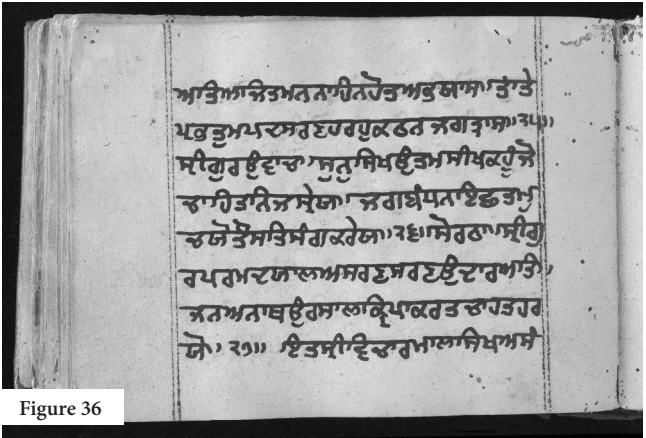 ਆਤਿਆਜਿਤਮਨਨਾਹਿਨਹੋਤਅਭਯਾਸ।ਤਾਂਤੇ
ਪ੍ਰਭਤੁਮਪਦਸਰਣਹਰਹੁਕਠਨਜਗਤ੍ਰਾਸ॥੨੫॥
ਸ੍ਰੀਗੁਰਉਵਾਚਾ।ਸੁਨੁਸਿਖਉਤਮਸੀਖਕਹੂੰਜੋ
ਚਾਹਿਤਨਿਜਸ੍ਰੇਯ।ਜਗਬੰਧਨਾਇਛਤਮੁ
ਚਯੋਤੌਸਤਿਸੰਗਕਰੇਯ॥੨੬॥ਸੋਰਠਾ।ਸ੍ਰੀਗੁ
ਰਪਰਮਦਯਾਲਅਸਰਣਸਰਣਉਦਾਰਆਤਿ॥
ਜਨਅਨਾਥਉਰਸਾਲਕ੍ਰਿਪਾਕਰਤਚਾਹਤਹਰ
ਯੋ॥੨੭॥ ਇਤਸ੍ਰੀਵਿਚਾਰਮਾਲਾਸਿਖਅਸੰ
Figure 36